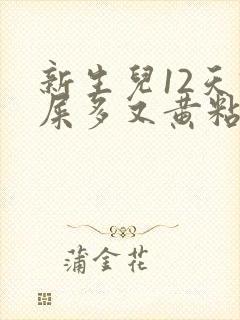 新生兒12天
屎多又黄粘
蒲金花